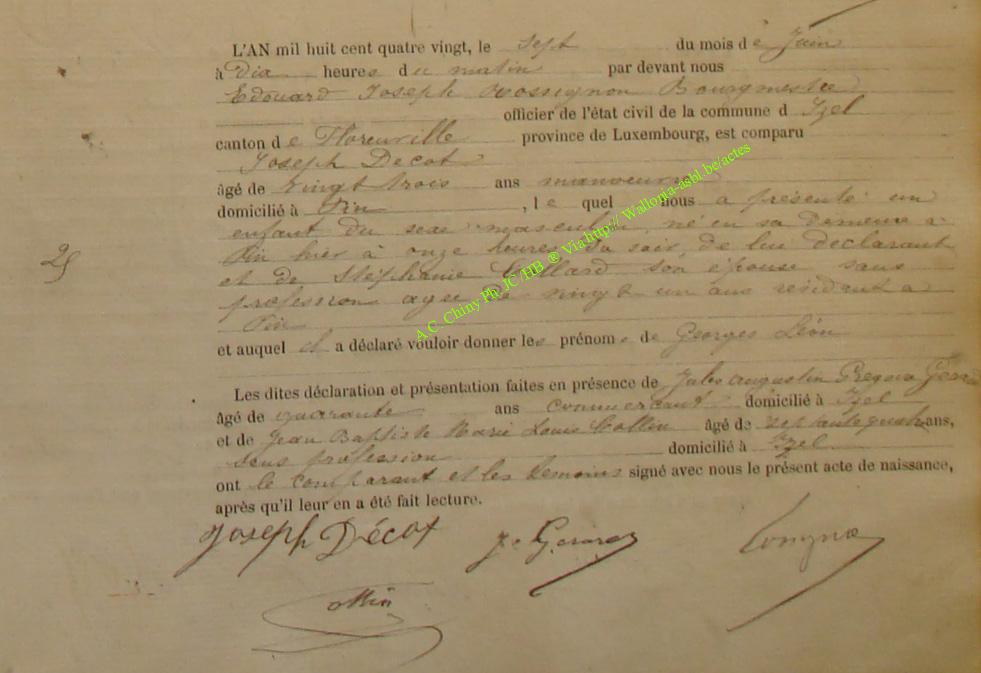 L'AN mil huit cent quatre vingt, le sept du mois de Juin
à dix heures du matin par devant nous
Edouard Joseph Rossignon Bourgmestre
officier de l'état civil de la commune d Izel
canton de Florenville province de Luxembourg, est comparu
Joseph Decot
âgé de vingt trois ans manoeuvre
domicilié à Pin, le quel nous a présenté un
enfant du sexe masculin, né en sa demeure à
Pin hier à onze heures du soir, de lui déclarant
et de Stéphanie Collard son épouse sans
profession agée de vingt un ans résidant à
Pin
25
et auquel il a déclaré vouloir donner les prénoms de Georges Léon
Les dites déclaration et présentation faites en présence de Jules Augustin Gérard
âgé de quarante ans commercant domicilié à Izel
et de Jean Baptiste Marie Louis Collin âgé de septante quatre ans,
sans profession domicilié à Izel
ont le comparant et les témoins signé avec nous le présent acte de naissance,
après qu'il leur en a été fait lecture.
Joseph Décot J. Gerard
A.C. Chiny Ph. JC/HB ® Via http:// Wallonia-asbl.be/actes